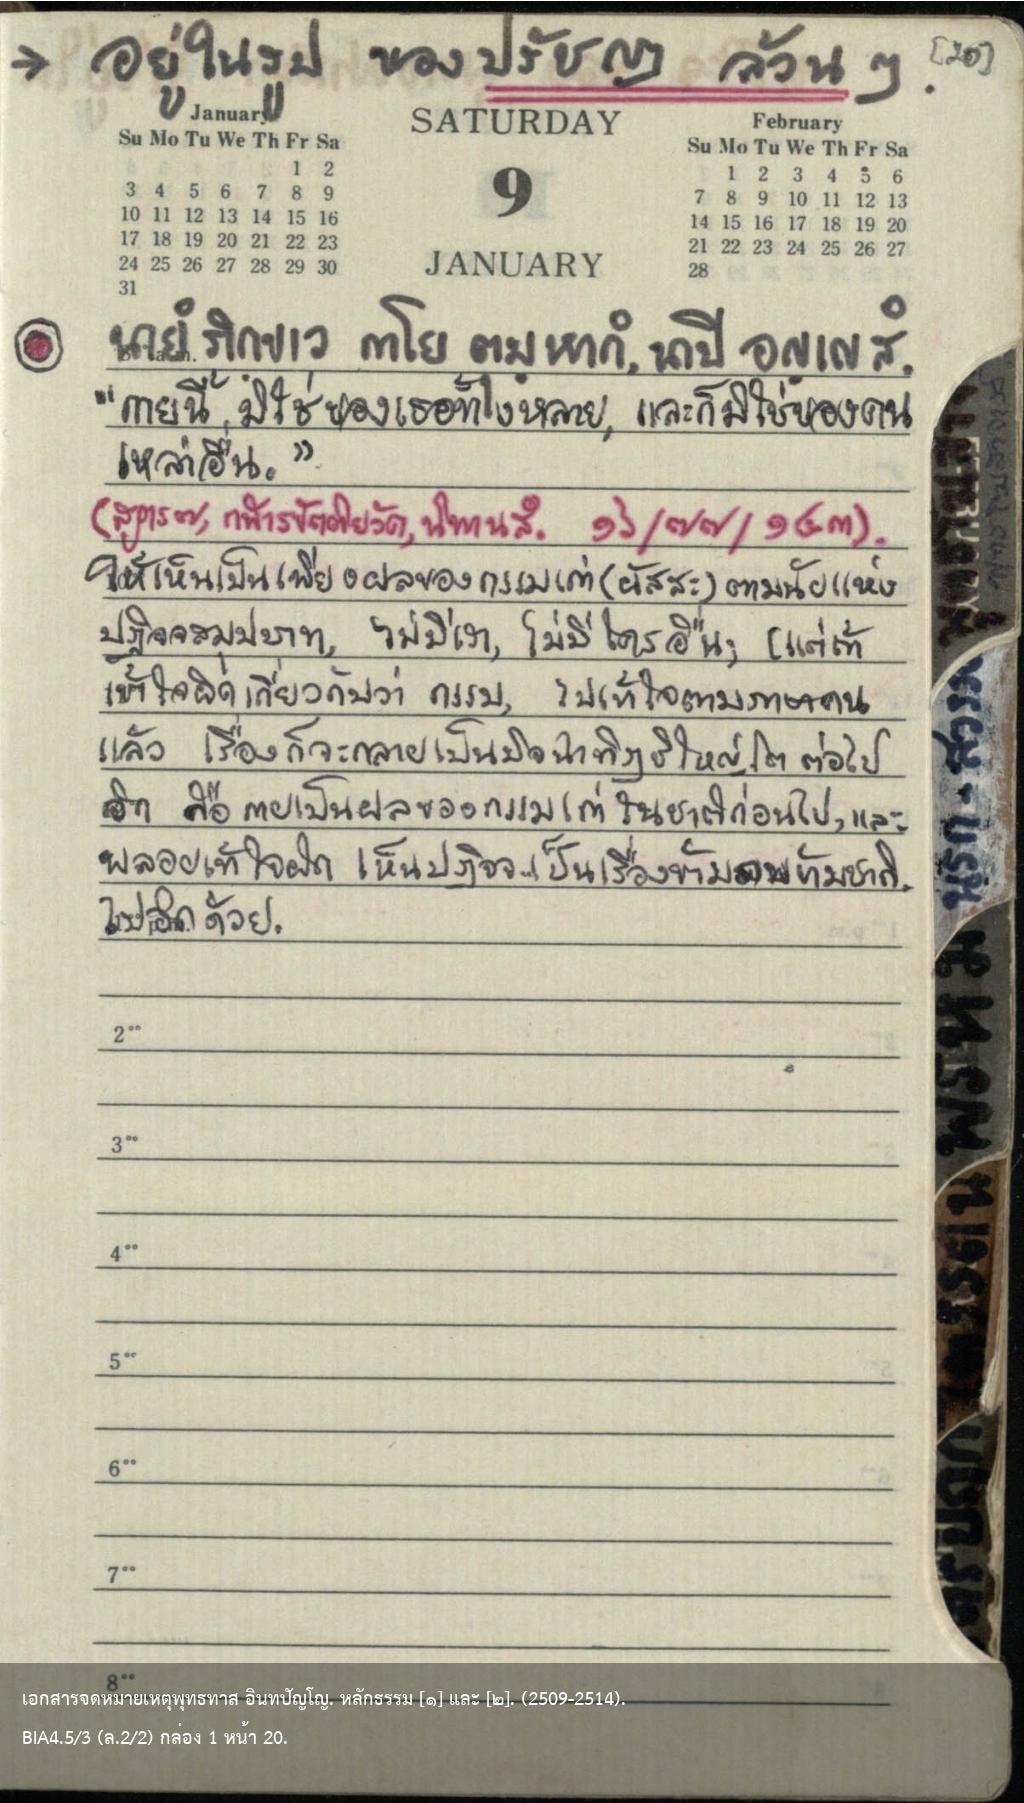 → อยู่ในรูป ของปรัชญา ล้วน ๆ. [๒๐]
January
Su Mo Tu We Th Fr Sa
1 2
3 4 5 6 7 8 9
10 11 12 13 14 15 16
17 18 19 20 21 22 23
24 25 26 27 28 29 30
31
SATURDAY
9
JANUARY
February
Su Mo Tu We Th Fr Sa
1 2 3 4 5 6
7 8 9 10 11 12 13
14 15 16 17 18 19 20
21 22 23 24 25 26 27
28
นายํ ภิกฺขเว กาโย ตุมฺหากํ, นาปิ อญฺเญสํ.
"กายนี้ มิใช่ของเธอทั้งหลาย, และก็มิใช่ของคน
เหล่าอื่น."
(สูตร ๗, กฬารขัตติยวัค, นิทานสํ. ๑๖/๗๗/๑๔๓).
ให้เห็นเป็นเพียงผลของกรรมเก่า (ผัสสะ) ตามนัยแห่ง
ปฏิจจสมุปบาท, ไม่มีเรา, ไม่มีใครอื่น; (แต่ถ้า
เข้าใจผิดเกี่ยวกับว่า กรรม, ไปเข้าใจตามภาษาคน
แล้ว เรื่องก็จะกลายเป็นมิจฉาทิฏฐิใหญ่โต ต่อไป
อีก คือ กายเป็นผลของกรรมเก่าในชาติก่อนไป, และ
พลอยเข้าใจผิด เห็นปฏิจจ.. เป็นเรื่องข้ามภพข้ามชาติ.
ไปอีกด้วย.
2⁰⁰
3⁰⁰
4⁰⁰
5⁰⁰
6⁰⁰
7⁰⁰
8⁰⁰
เอกสารจดหมายเหตุพุทธทาส อินทปัญโญ. หลักธรรม [๑] และ [๒]. (2509-2514).
BIA4.5/3 (ล.2/2) กล่อง 1 หน้า 20.